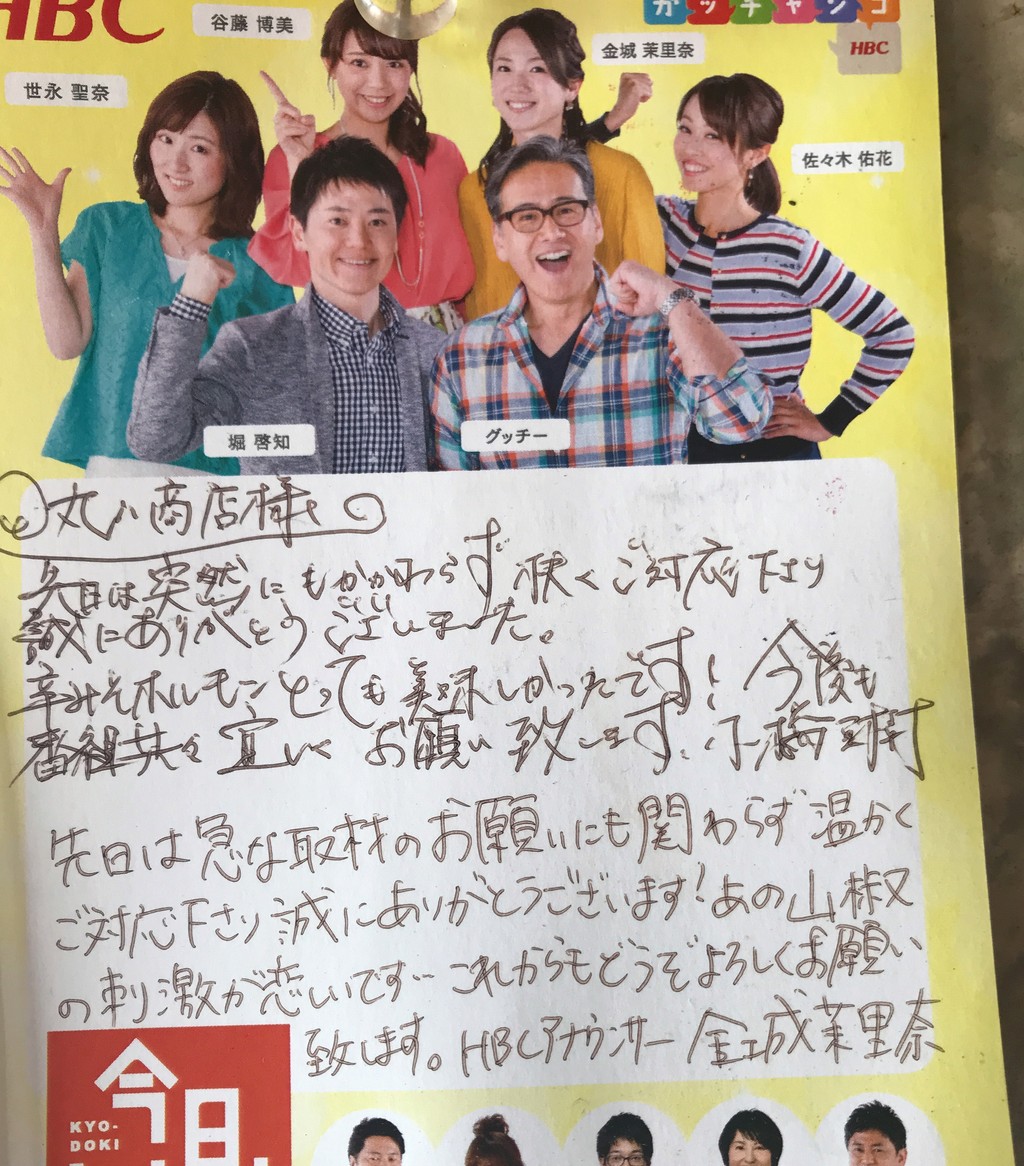 HBC
谷藤 博美
ガッチャンコ
HBC
金城 茉里奈
世永 聖奈
佐々木 佑花
堀 啓知
グッチー
商店様
先日は突然にもかかわらず 快くご対応下さり
誠にありがとうございました。
辛みそホルモンとっても美味しかったです! 今後も
番組共々宜しくお願い致します。
先日は急な取材のお願いにも関わらず温かく
ご対応下さり誠にありがとうございます!あの山椒
の刺激が恋しいです… これからもどうぞよろしくお願い
致します。HBCアナウンサー 金城茉里奈
今日
KYO-
DOKI